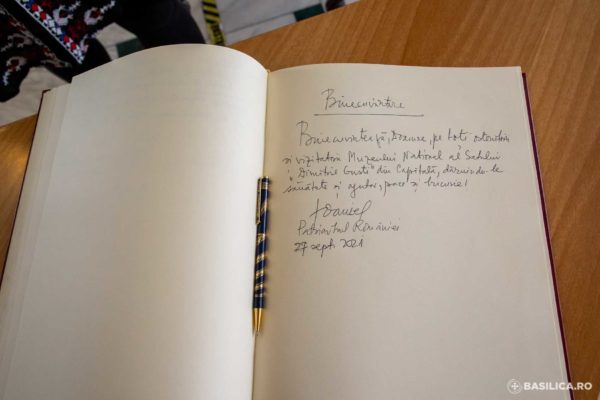 Binecuvântare
Binecuvintează, Doamne, pe toți ostenitorii
și vizitatorii Muzeului Național al Satului
"Dimitrie Gusti" din Capitală, dăruindu-le
sănătate și ajutor, pace și bucurie!
† Daniel
Patriarhul României
27 sept. 2021
BASILICA.RO